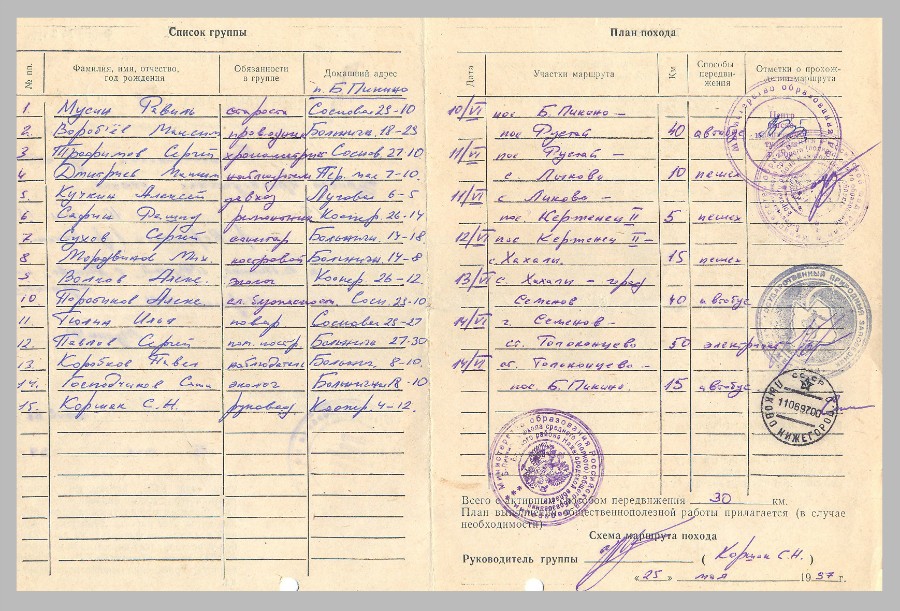 Список группы
№ пп.
Фамилия, имя, отчество, год рождения
Обязанности в группе
Домашний адрес
п. Б Пикино
1 Мусин Равиль староста Сосновая 23-10
2. Воробьёв Максим проводник Больничн. 18-23
3 Трофимов Сергей хронометрист Соснов. 27-10
4 Дмитриев Пер. маг 7-10.
5 Кучкин Алексей завхоз Луговая 6-5
6. Сафин Рашид ремонтник Коопер. 26-14
7. Сухов Сергей санитар Больничн. 14-18
8 Мордвинов Мих. костровой Больничн. 14-8
9 Волков Алекс. эколог Коопер 26-12
10 Алекс. безопасность Сосн. 23-10
11. Тюлин Илья повар Сосновая 23-27
12. Павлов Сергей пом. костр. Больничн 27-30
13. Коробков Павел наблюдатель Больнич. 8-10.
14. Господчиков Саша эколог Больничн 18-10
15. Коршак С.Н. руковод. Коопер. 4-12.
План похода
Дата
Участки маршрута
Км
Способы передвижения
Отметки о прохождении маршрута
10/VI пос Б. Пикино –
пос Рустай 40 автобус
11/VI пос Рустай –
с. Лыково 10 пешех
11/VI с. Лыково –
пос. Керженец II 5 пешех
12/VI пос Керженец II –
с. Хахалы 15 пешех
13/VI с. Хахалы – град
Семенов 40 автобус
14/VI г. Семенов –
ст. Толоконцево 50 электричка
14/VI ст. Толоконцево –
пос. Б. Пикино 15 автобус
СССР
110697
Всего с активным способом передвижения 30 км.
План выполнения общественнополезной работы прилагается (в случае
необходимости)
Схема маршрута похода
Руководитель группы ( Коршак С.Н. )
«25» мая 1997 г.